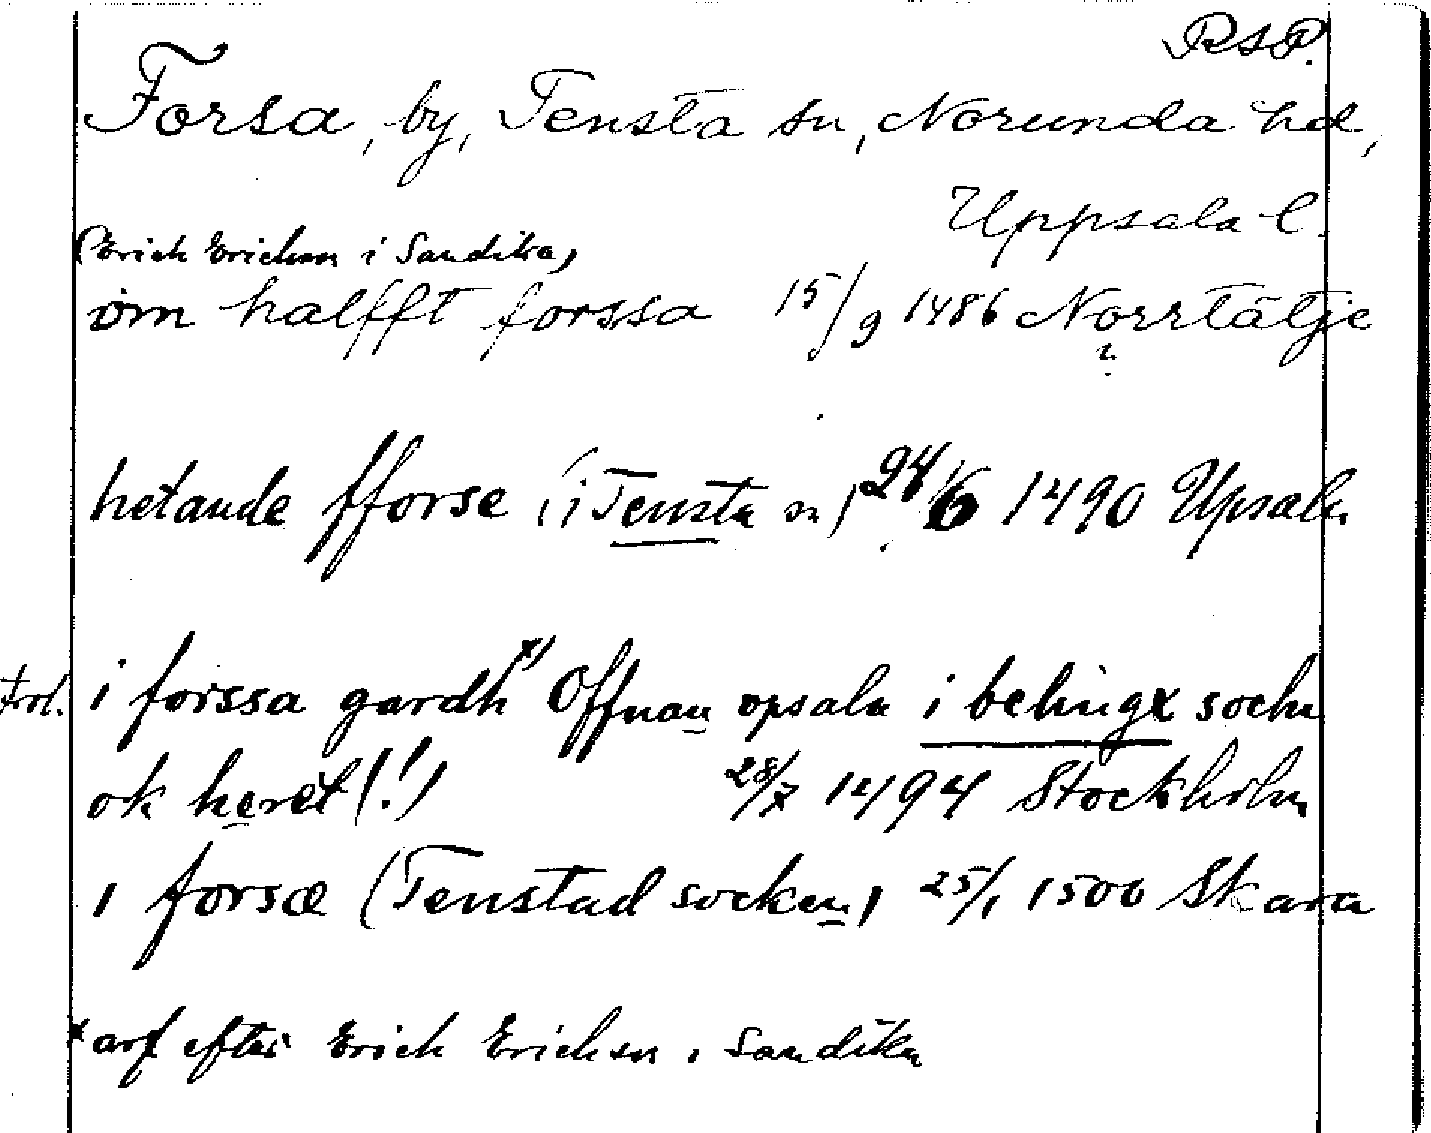 RSP.
Forsa, by, Tensta sn, Norunda hd,
Uppsala l.
(Erich Ericksson i Sandika)
om halfft forssa 15/9 1486 Norrtälje
?
hetande fforse (i Tensta sn) 24/6 1490 Upsala
i forssa gardh x) Offnan opsala i belingx sochn
ok heret (!) 28/7 1494 Stockholm
i forsæ (Tenstad socken) 25/1 1500 Skara
x arf efter Erich Ericksson i Sandika